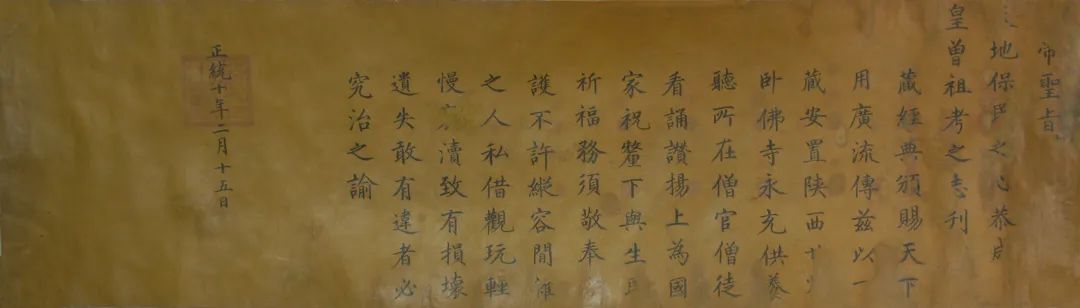 帝聖旨
地保民之心恭成
皇曾祖考之志刊
藏經典頒賜天下
用廣流傳茲以一
藏安置陕西甘
卧佛寺永充供養
聽所在僧官僧徒
看誦讚揚上為國
家祝釐下與生民
祈福務須敬奉
護不許縱容閒雜
之人私借觀玩輕
慢瀆致有損壞
遺失敢有違者必
究治之諭
正統十年二月十五日